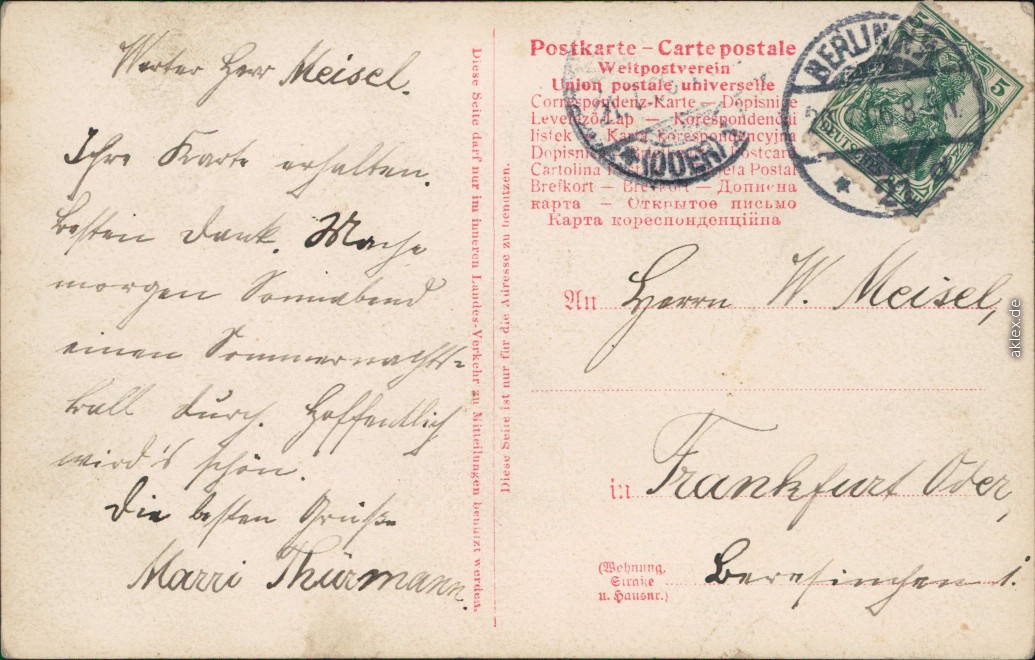 Werter Herr Meisel.
Ihre Karte erhalten.
besten Dank. Mache
morgen Sonnabend
einen Sommernachts-
ball durch. Hoffentlich
wird's schön.
Die besten Grüße
Marri Thürmann.
Diese Seite darf nur im inneren Landes-Verkehr zu Mitteilungen benutzt werden.
Diese Seite ist nur für die Adresse zu benutzen.
Postkarte – Carte postale
Weltpostverein
Union postale universelle
Correspondenz-Karte – Dopisnice
Levelező-Lap – Korespondencni
listek – Karta korespondencyjna
Dopisnica Postcard
Cartolina Postal
Brefkort – Brevkort – Дописна
карта – Открытое письмо
Карта кореспонденційна
(ODER)
BERLIN
5
5
DEUTSCHES
An Herrn W. Meisel,
in Frankfurt Oder,
(Wohnung, Straße u. Hausnr.) Beresinchen 1.
aklex.de